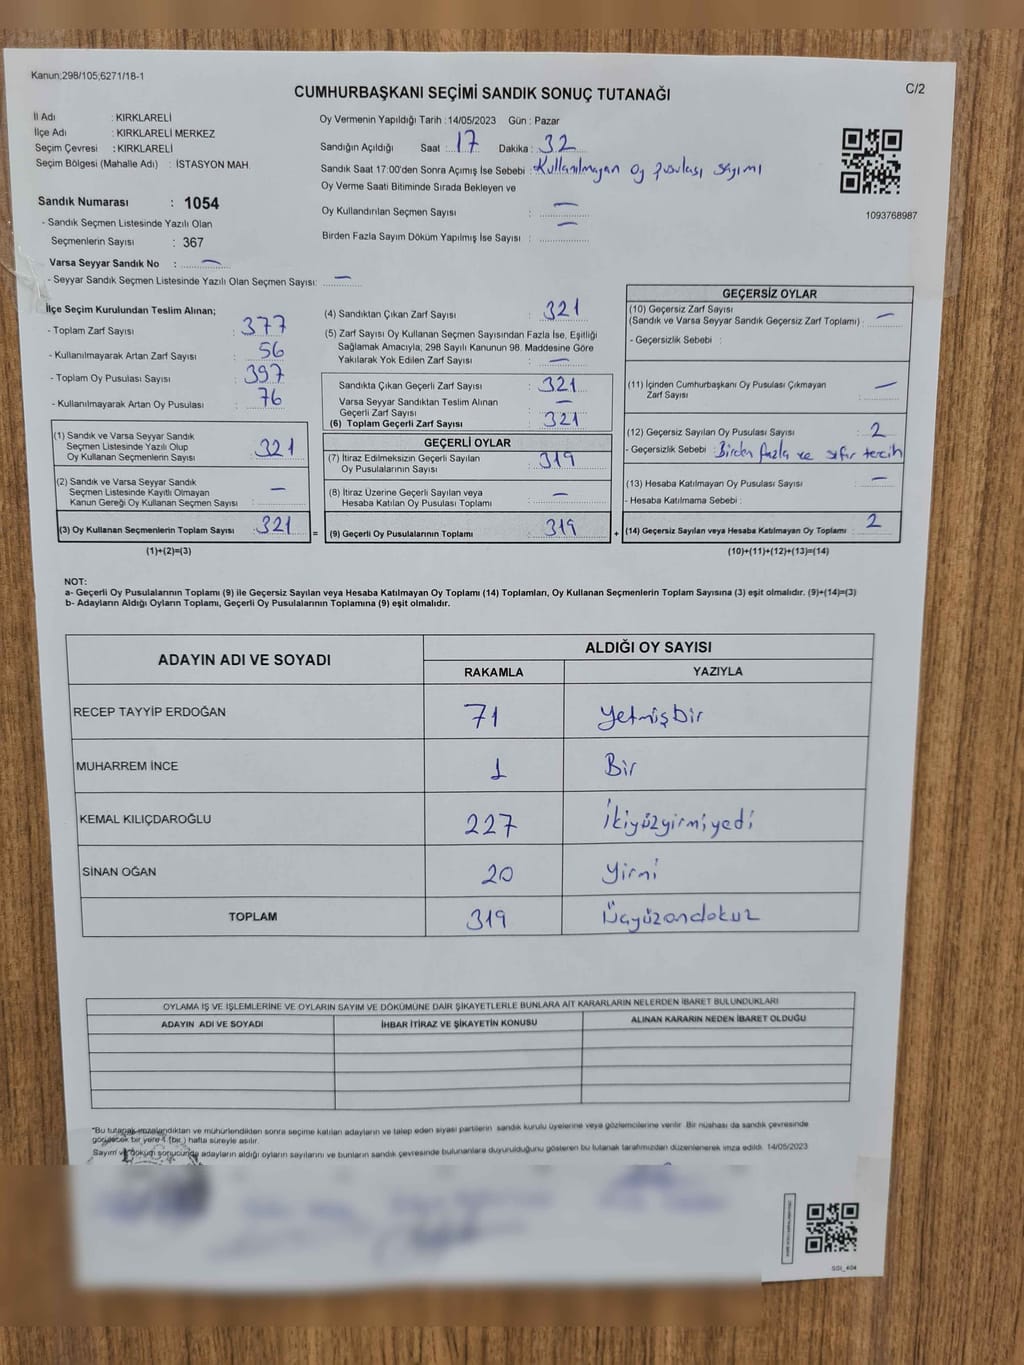 Kanun:298/105;6271/18-1
C/2
CUMHURBAŞKANI SEÇİMİ SANDIK SONUÇ TUTANAĞI
İl Adı : KIRKLARELİ
İlçe Adı : KIRKLARELİ MERKEZ
Seçim Çevresi : KIRKLARELİ
Seçim Bölgesi (Mahalle Adı) : İSTASYON MAH.
Sandık Numarası : 1054
- Sandık Seçmen Listesinde Yazılı Olan
Seçmenlerin Sayısı : 367
Varsa Seyyar Sandık No : —
- Seyyar Sandık Seçmen Listesinde Yazılı Olan Seçmen Sayısı: —
Oy Vermenin Yapıldığı Tarih : 14/05/2023 Gün : Pazar
Sandığın Açıldığı Saat : 17 Dakika : 32
Sandık Saat 17:00'den Sonra Açımış İse Sebebi : Kullanılmayan oy pusulası sayımı
Oy Verme Saati Bitiminde Sırada Bekleyen ve
Oy Kullandırılan Seçmen Sayısı : —
Birden Fazla Sayım Döküm Yapılmış İse Sayısı : —
1093768987
İlçe Seçim Kurulundan Teslim Alınan;
- Toplam Zarf Sayısı : 377
- Kullanılmayarak Artan Zarf Sayısı : 56
- Toplam Oy Pusulası Sayısı : 397
- Kullanılmayarak Artan Oy Pusulası : 76
(1) Sandık ve Varsa Seyyar Sandık
Seçmen Listesinde Yazılı Olup
Oy Kullanan Seçmenlerin Sayısı : 321
(2) Sandık ve Varsa Seyyar Sandık
Seçmen Listesinde Kayıtlı Olmayan
Kanun Gereği Oy Kullanan Seçmen Sayısı : —
(3) Oy Kullanan Seçmenlerin Toplam Sayısı : 321
(1)+(2)=(3)
(4) Sandıktan Çıkan Zarf Sayısı : 321
(5) Zarf Sayısı Oy Kullanan Seçmen Sayısından Fazla İse, Eşitliği
Sağlamak Amacıyla; 298 Sayılı Kanunun 98. Maddesine Göre
Yakılarak Yok Edilen Zarf Sayısı : —
Sandıkta Çıkan Geçerli Zarf Sayısı : 321
Varsa Seyyar Sandıktan Teslim Alınan
Geçerli Zarf Sayısı : —
(6) Toplam Geçerli Zarf Sayısı : 321
GEÇERLİ OYLAR
(7) İtiraz Edilmeksizin Geçerli Sayılan
Oy Pusulalarının Sayısı : 319
(8) İtiraz Üzerine Geçerli Sayılan veya
Hesaba Katılan Oy Pusulası Toplamı : —
= (9) Geçerli Oy Pusulalarının Toplamı : 319 +
GEÇERSİZ OYLAR
(10) Geçersiz Zarf Sayısı
(Sandık ve Varsa Seyyar Sandık Geçersiz Zarf Toplamı) : —
- Geçersizlik Sebebi :
(11) İçinden Cumhurbaşkanı Oy Pusulası Çıkmayan
Zarf Sayısı : —
(12) Geçersiz Sayılan Oy Pusulası Sayısı : 2
- Geçersizlik Sebebi : Birden fazla ve sıfır tercih
(13) Hesaba Katılmayan Oy Pusulası Sayısı : —
- Hesaba Katılmama Sebebi :
(14) Geçersiz Sayılan veya Hesaba Katılmayan Oy Toplamı : 2
(10)+(11)+(12)+(13)=(14)
NOT:
a- Geçerli Oy Pusulalarının Toplamı (9) ile Geçersiz Sayılan veya Hesaba Katılmayan Oy Toplamı (14) Toplamları, Oy Kullanan Seçmenlerin Toplam Sayısına (3) eşit olmalıdır. (9)+(14)=(3)
b- Adayların Aldığı Oyların Toplamı, Geçerli Oy Pusulalarının Toplamına (9) eşit olmalıdır.
ADAYIN ADI VE SOYADI
ALDIĞI OY SAYISI
RAKAMLA YAZIYLA
RECEP TAYYİP ERDOĞAN 71 Yetmişbir
MUHARREM İNCE 1 Bir
KEMAL KILIÇDAROĞLU 227 İkiyüzyirmiyedi
SİNAN OĞAN 20 Yirmi
TOPLAM 319 Üçyüzondokuz
OYLAMA İŞ VE İŞLEMLERİNE VE OYLARIN SAYIM VE DÖKÜMÜNE DAİR ŞİKAYETLERLE BUNLARA AİT KARARLARIN NELERDEN İBARET BULUNDUKLARI
ADAYIN ADI VE SOYADI İHBAR İTİRAZ VE ŞİKAYETİN KONUSU ALINAN KARARIN NEDEN İBARET OLDUĞU
"Bu tutanak imzalandıktan ve mühürlendikten sonra seçime katılan adayların ve talep eden siyasi partilerin sandık kurulu üyelerine veya gözlemcilerine verilir. Bir nüshası da sandık çevresinde
görülecek bir yere 1 (bir) hafta süreyle asılır.
Sayım ve döküm sonucunda adayların aldığı oyların sayılarını ve bunların sandık çevresinde bulunanlara duyurulduğunu gösteren bu tutanak tarafımızdan düzenlenerek imza edildi. 14/05/2023
SGI_404